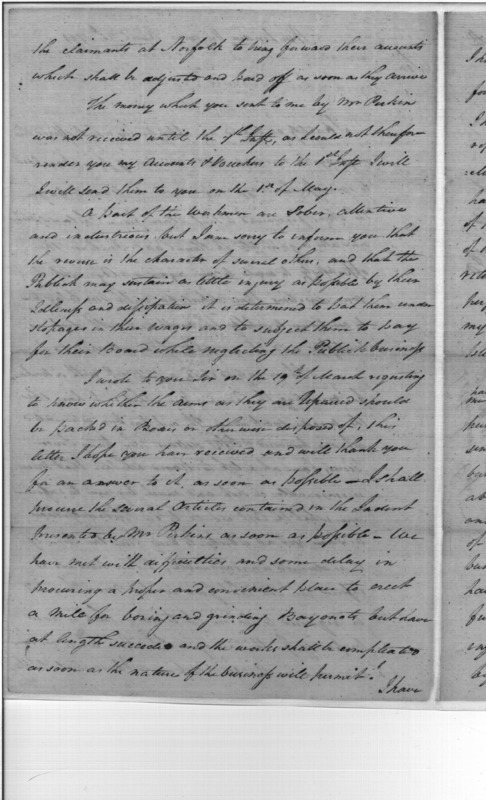 the claimants at Norfolk to bring forward their accounts
which shall be adjusted and paid off as soon as they arrive
The money which you sent to me by Mr Perkin
was not received until the Inst, as I could not therefore
render you my Accounts & Vouchers to the 1st Inst I will
I will send them to you on the 1st of May.
A part of the Workmen are Sober, attentive
and industrious but I am sorry to inform you that
the reverse is the character of several others, and that the
Publick may sustain as little injury as possible by their
Idleness and dissipation it is determined to put them under
stopages in their wages and to subject them to pay
for their Board while neglecting the Publick business
I wrote to you Sir on the 19th of March requesting
to know whether the arms as they are repaired should
be packed in Boxes or otherwise disposed of; this
letter I hope you have received and will thank you
for an answer to it as soon as possible – I shall
procure the several Articles contained in the Indent
presented by Mr Perkins as soon as possible – We
have met with difficulties and some delay in
procuring a proper and convenient place to erect
a mile for boring and grinding Bayonets but have
at length succeeded and the works shall be compleated
as soon as the nature of the business will permit.
I have